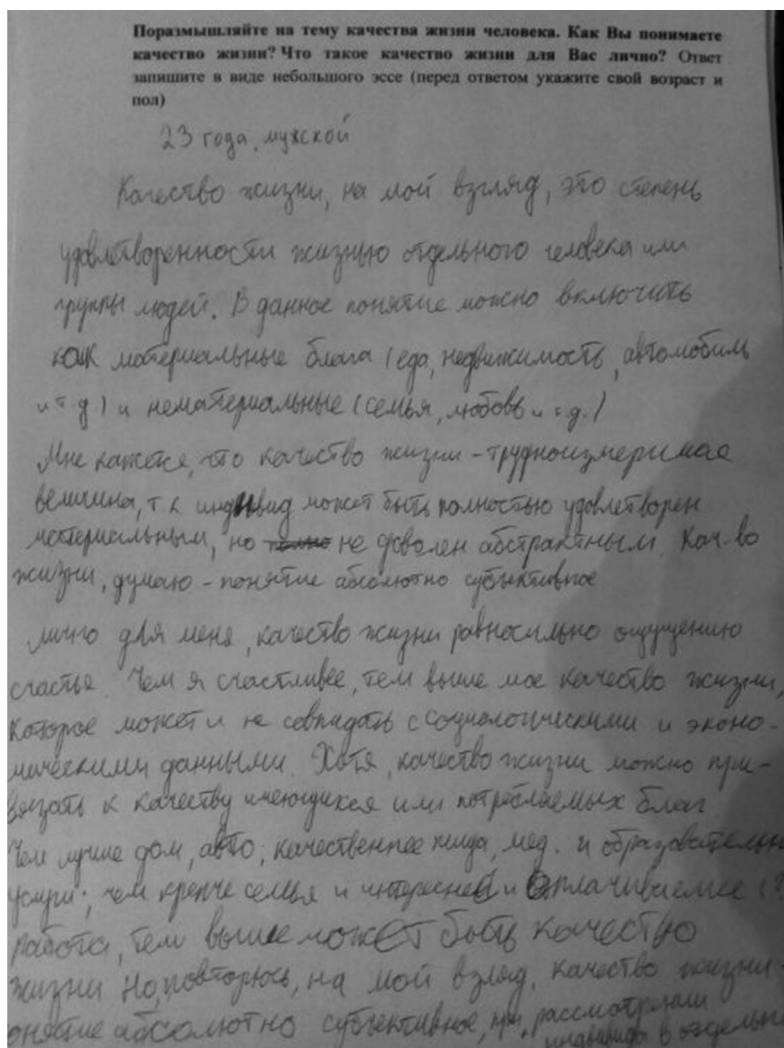 Поразмышляйте на тему качества жизни человека. Как Вы понимаете
качество жизни? Что такое качество жизни для Вас лично? Ответ
запишите в виде небольшого эссе (перед ответом укажите свой возраст и
пол)
23 года, мужской
Качество жизни, на мой взгляд, это степень
удовлетворенности жизнью отдельного человека или
группы людей. В данное понятие можно включить
как материальные блага (еда, недвижимость, автомобиль
и т д) и нематериальные (семья, любовь и т.д.)
Мне кажется, что качество жизни - трудноизмеримая
величина, т к индивид может быть полностью удовлетворен
материальным, но не доволен абстрактным. Кач-во
жизни, думаю - понятие абсолютно субъективное
Лично для меня, качество жизни равносильно ощущению
счастья. Чем я счастливее, тем выше мое качество жизни,
которое может и не совпадать с социологическими и эконо-
мическими данными. Хотя, качество жизни можно при-
вязать к качеству имеющихся или потребляемых благ
Чем лучше дом, авто, качественнее пища, мед. и образовательн
услуги; чем крепче семья и интересней и оплачиваемее (?
работа, тем выше может быть качество
жизни Но, повторюсь, на мой взгляд, качество жизни -
онятие абсолютно субъективное, при рассмотрении
индивида в отдельно